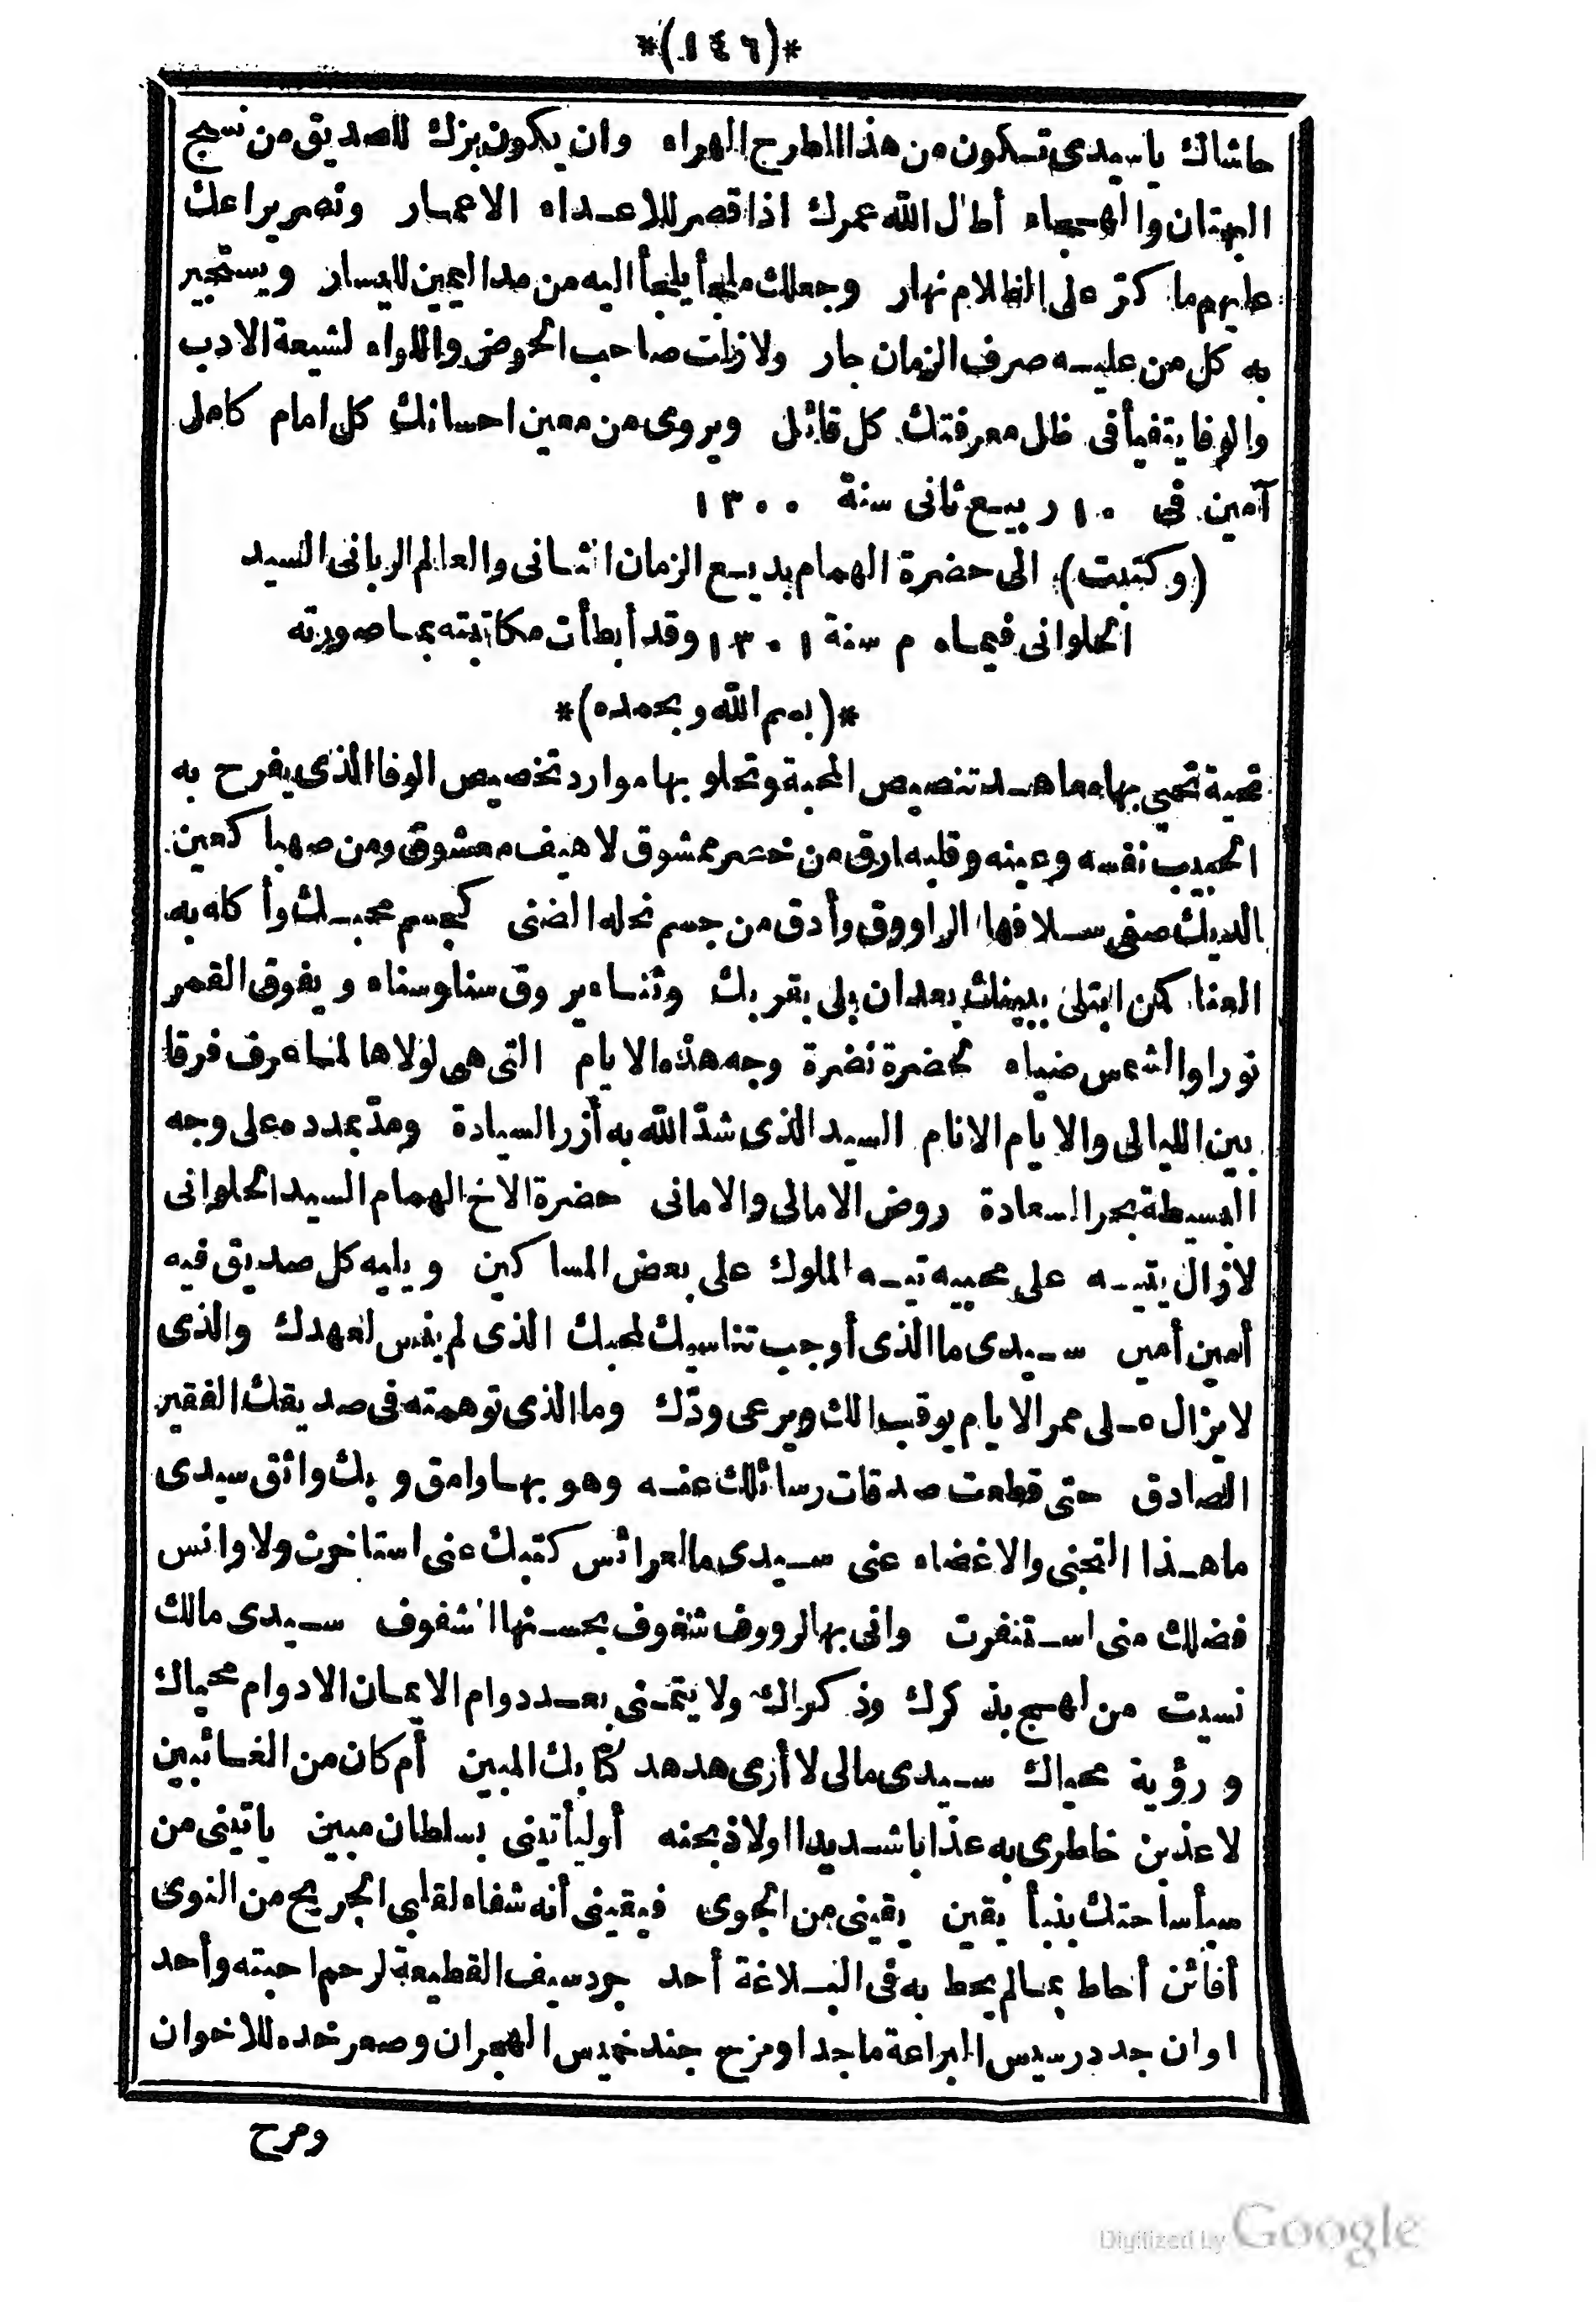 *(١٤٦)*
حاشاك ياسيدى تكون من هذا المطرح الهراء وان يكون بزك للصديق من نسيج
البهتان والهجاء أطال الله عمرك اذا قصر للاعداء الاعمار ونصر يراعك
عليهم ما كرّ على الظلام نهار وجعلك ملجأ يلجأ اليه من مد اليمين لليسار ويستجير
به كل من عليه صرف الزمان جار ولازلت صاحب الحوض واللواء لشيعة الادب
والوفا يتفيأ فى ظل معرفتك كل قائل ويروى من معين احسانك كل امام كامل
آمين فى ١٠ ربيع ثانى سنة ١٣٠٠
(وكتبت) الى حضرة الهمام بديع الزمان الثانى والعالم الربانى السيد
الحلوانى فيماه م سنة ١٣٠١ وقد أبطأت مكاتبته بما صورته
*(بسم الله وبحمده)*
تحية تحيى بها معاهد تنصيص المحبة وتحلو بها موارد تخصيص الوفا الذى يفرح به
الحبيب نفسه وعينه وقلبه ارق من خصر ممشوق لاهيف معشوق ومن صهبا كعين
الديك صفى سلافها الراووق وأدق من جسم نحله الضنى كجسم محبك وأكله به
العنا كمن ابتلى ببينك بعد ان بلى بقربك وثناء يروق سنا وسناء ويفوق القمر
نورا والشمس ضياء لحضرة نضرة وجه هذه الايام التى هى لولاها لما عرف فرقا
بين الليالى والايام الانام السيد الذى شدّ الله به أزر السيادة ومدّ بمدده على وجه
البسيطة بحر السعادة روض الامالى والامانى حضرة الاخ الهمام السيد الحلوانى
لازال يتيه على محبيه تيه الملوك على بعض المساكين ويليه كل صديق فيه
أمين أمين سيدى ما الذى أوجب تناسيك لمحبك الذى لم ينس لعهدك والذى
لايزال على ممر الايام يرقب الك ويرعى ودّك وما الذى توهمته فى صديقك الفقير
الصادق حتى قطعت صدقات رسائلك عنه وهو بها وامق وبك واثق سيدى
ماهذا التجنى والاغضاء عنى سيدى ما لعرائس كتبك عنى استاخرت ولاوانس
فضلك منى استنفرت وانى بها لرووف شغوف بحسنها الشفوف سيدى مالك
نسيت من لهج بذكرك وذكراك ولا يتمنى بعد دوام الايمان الا دوام محياك
ورؤية محياك سيدى مالى لا أرى هدهد كتابك المبين أم كان من الغائبين
لاعذبن خاطرى به عذابا شديدا اولاذبحنه أوليأتينى بسلطان مبين ياتينى من
سبأ ساحتك بنبأ يقين يقينى من الجوى فيقينى أنه شفاء لقلبى الجريح من النوى
أفائن أحاط بما لم يحط به فى البلاغة أحد جرد سيف القطيعة لرحم احبته وأحد
اوان جدد رسيس البراعة ماجدا ومزح جند خميس الهجران وصعر خده للاخوان
ومرح
Digitized by Google